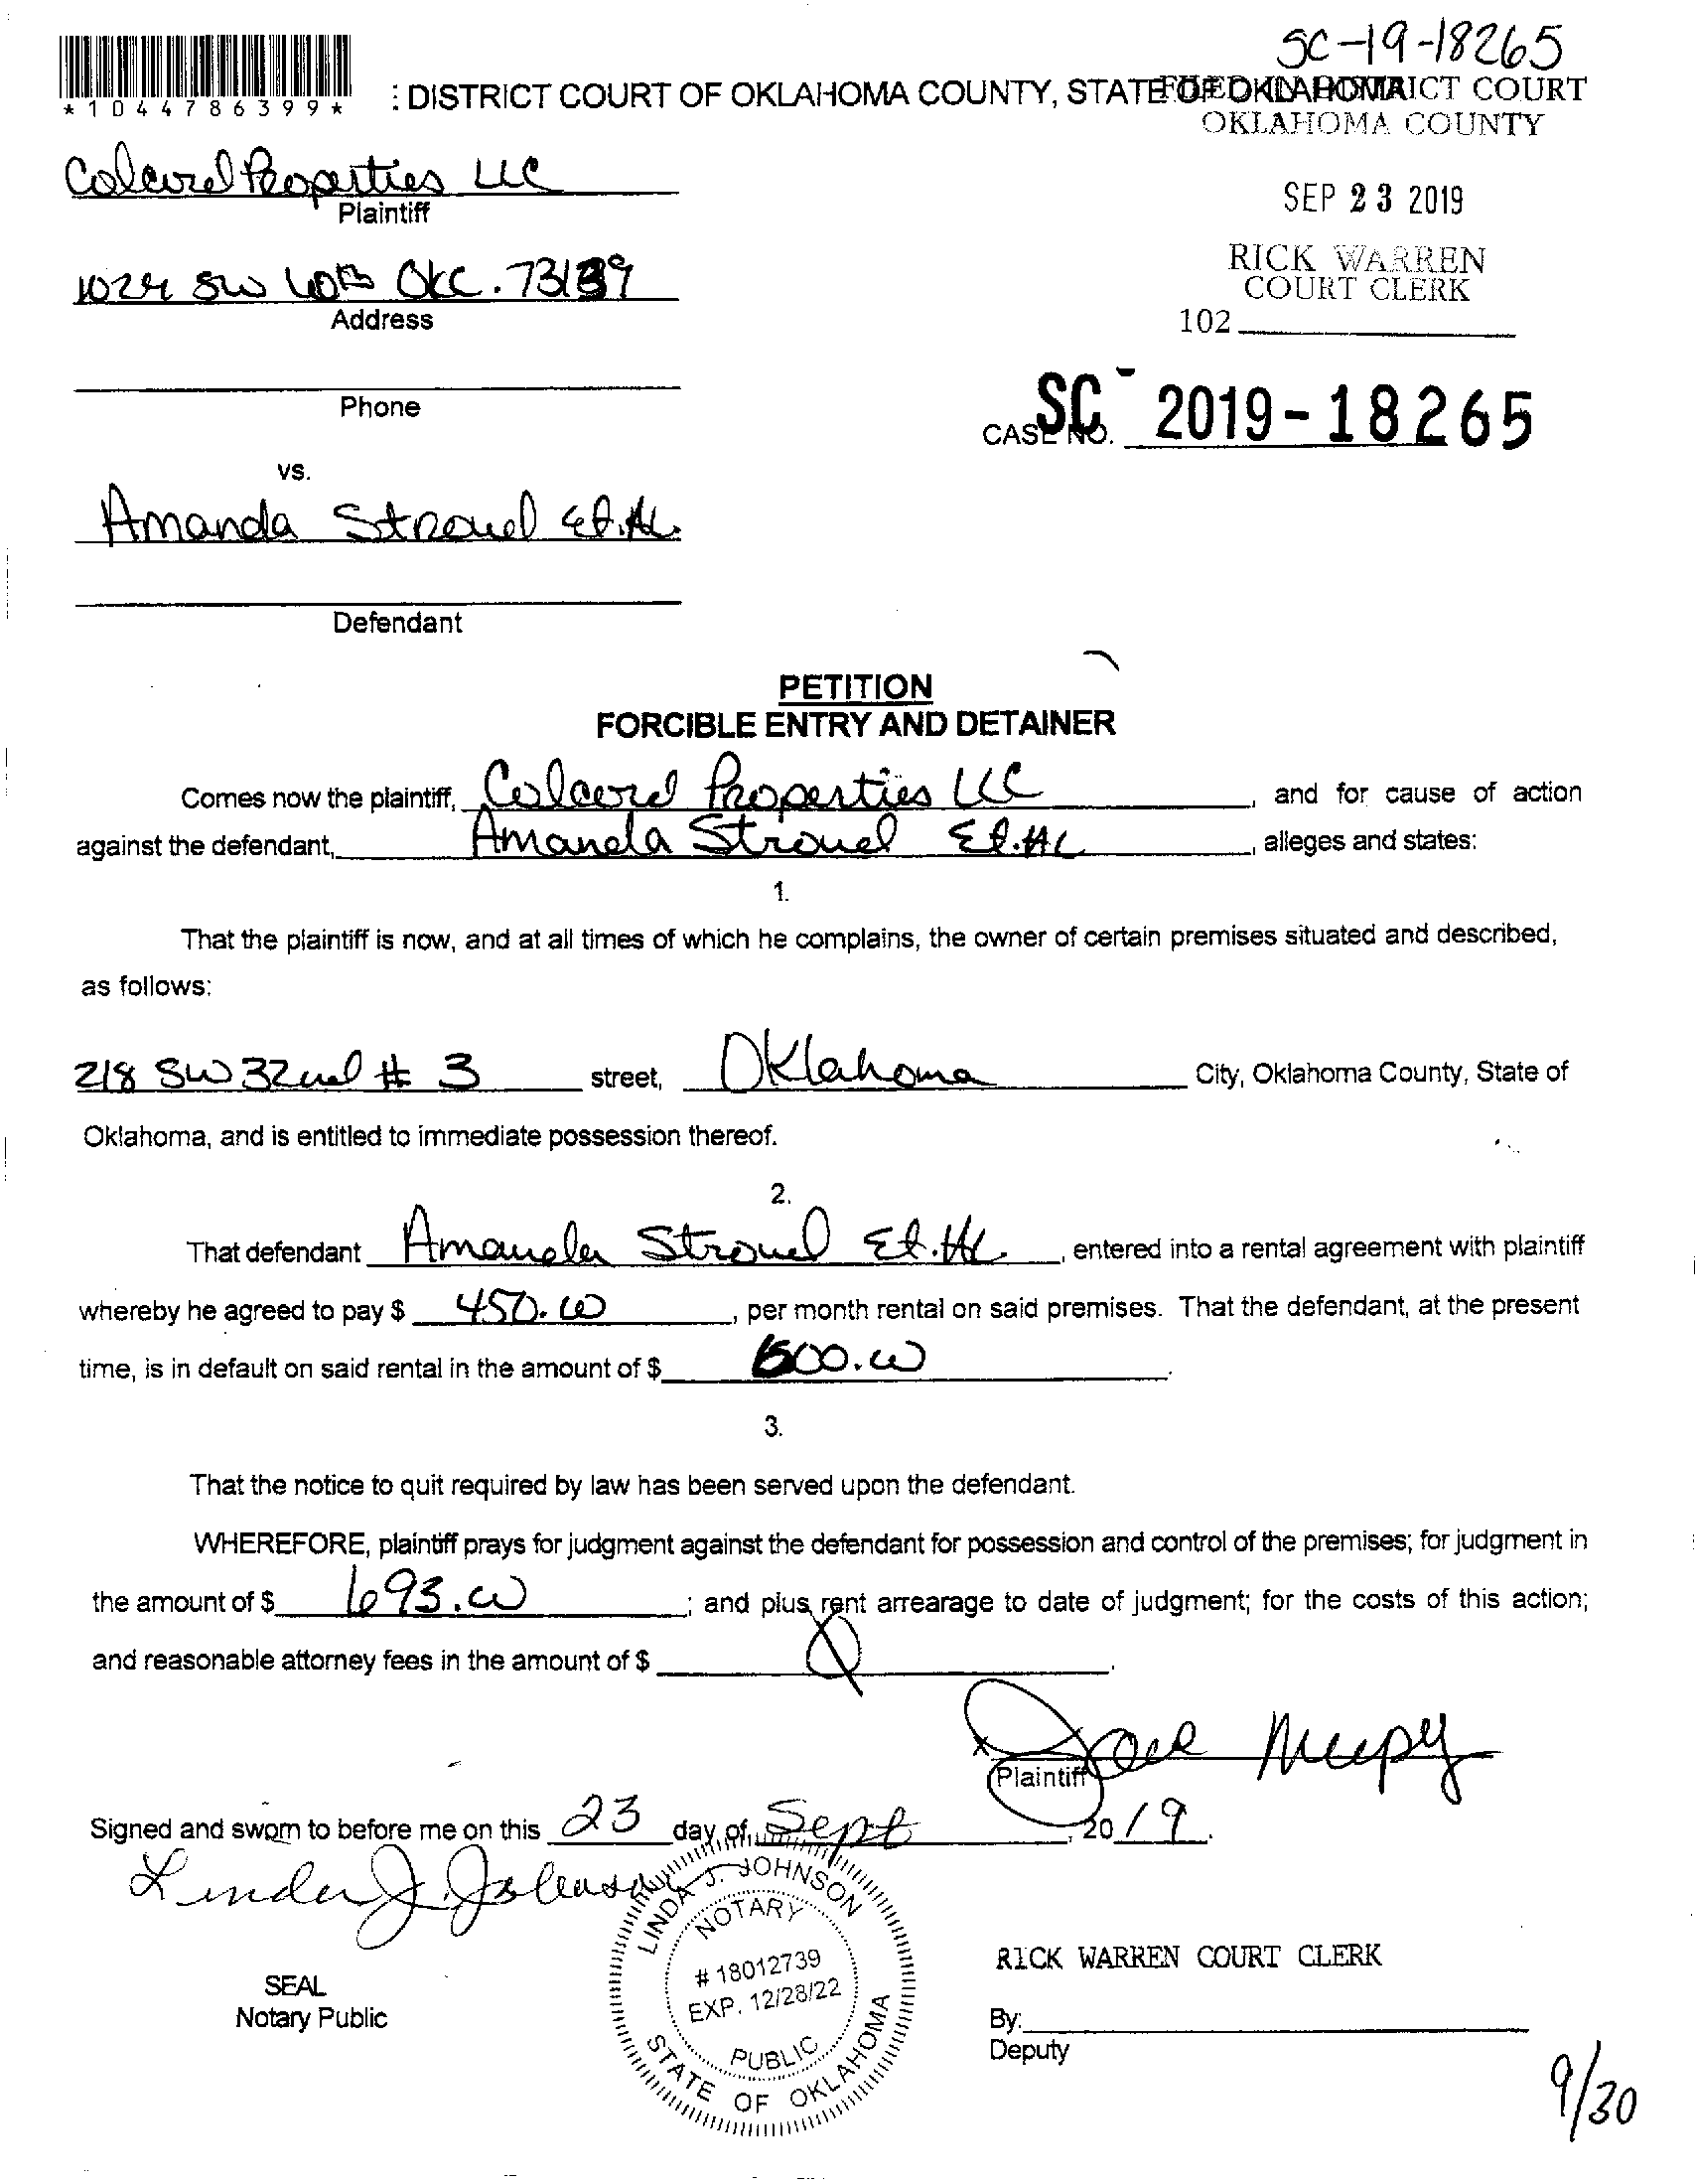 SC-19-18265
*1044786399*
: DISTRICT COURT OF OKLAHOMA COUNTY, STATE OF OKLAHOMA
FILED IN DISTRICT COURT
OKLAHOMA COUNTY
Properties LLC
Plaintiff
SEP 23 2019
RICK WARREN
COURT CLERK
102
SW OKC. 73139
Address
Phone
CASE NO. SC- 2019-18265
vs.
Amanda Stroud Et.Al.
Defendant
PETITION
FORCIBLE ENTRY AND DETAINER
Comes now the plaintiff, Properties LLC, and for cause of action
against the defendant, Amanda Stroud Et.Al, alleges and states:
1.
That the plaintiff is now, and at all times of which he complains, the owner of certain premises situated and described,
as follows:
218 SW 32nd # 3 street, Oklahoma City, Oklahoma County, State of
Oklahoma, and is entitled to immediate possession thereof.
2.
That defendant Amanda Stroud Et.Al, entered into a rental agreement with plaintiff
whereby he agreed to pay $ 450.00, per month rental on said premises. That the defendant, at the present
time, is in default on said rental in the amount of $
3.
That the notice to quit required by law has been served upon the defendant.
WHEREFORE, plaintiff prays for judgment against the defendant for possession and control of the premises; for judgment in
the amount of $ 693.00; and plus rent arrearage to date of judgment; for the costs of this action;
and reasonable attorney fees in the amount of $
Plaintiff
Signed and sworn to before me on this 23 day of Sept, 2019.
Linda J. Johnson
LINDA J. JOHNSON
NOTARY
# 18012739
EXP. 12/28/22
PUBLIC
STATE OF OKLAHOMA
SEAL
Notary Public
RICK WARREN COURT CLERK
By:
Deputy
9/30